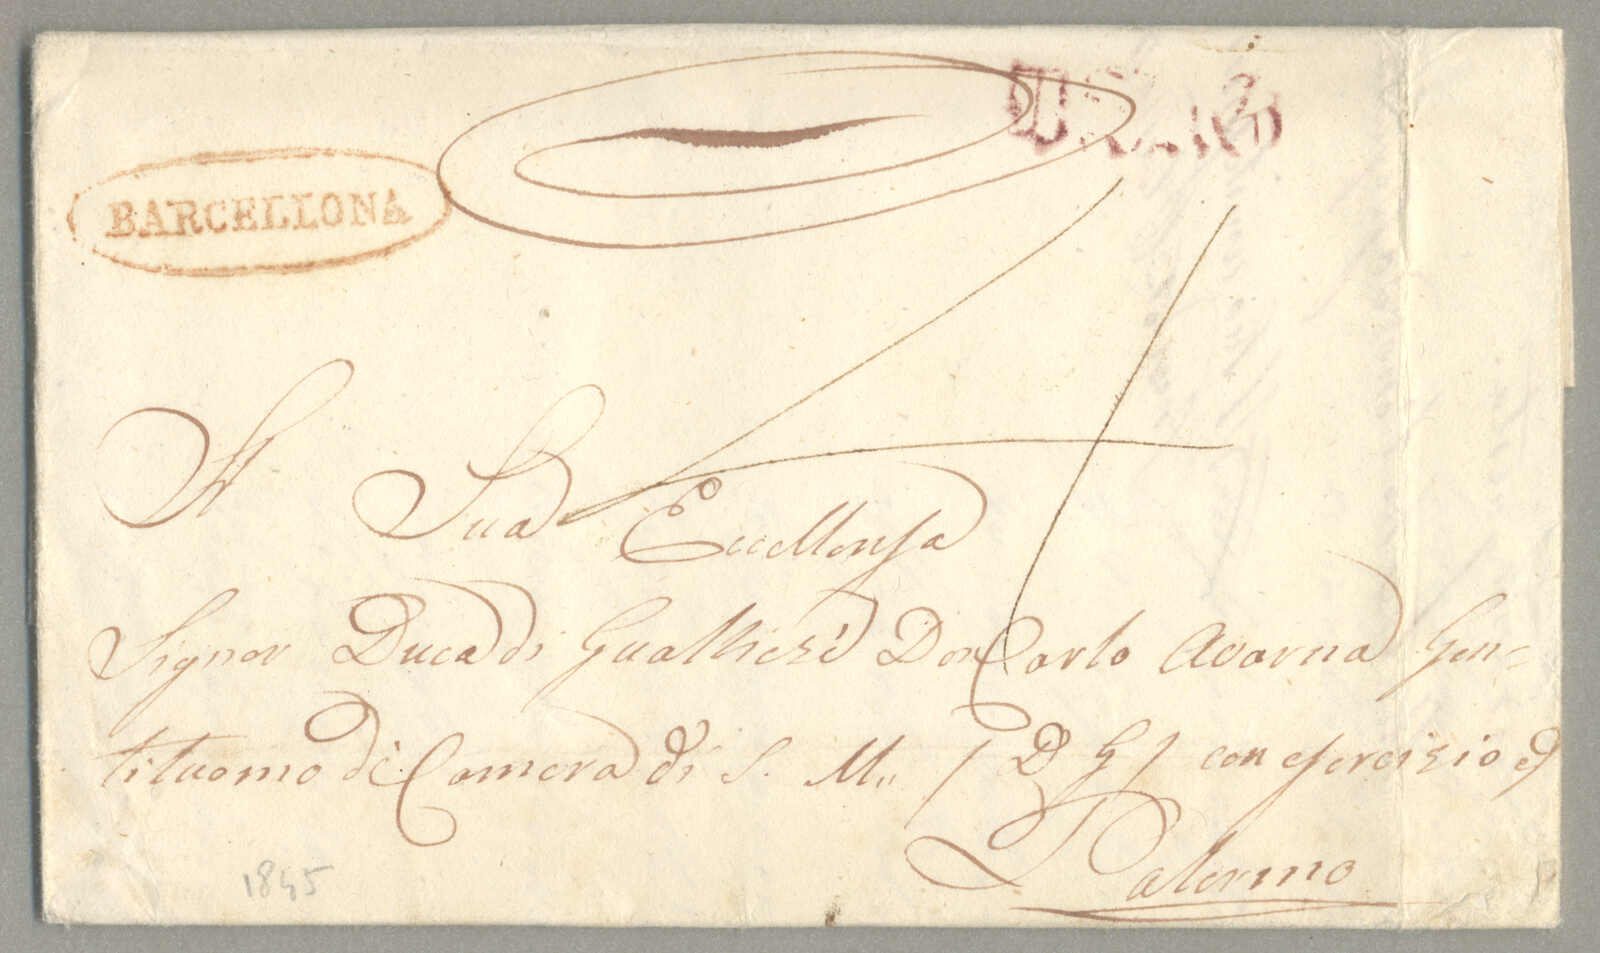 BARCELLONA
4
A Sua Eccellenza
Signor Duca di Gualtieri Don Carlo Avarna Gen=
tiluomo di Camera di S. M. / D. G. / con esercizio &
Palermo
1845